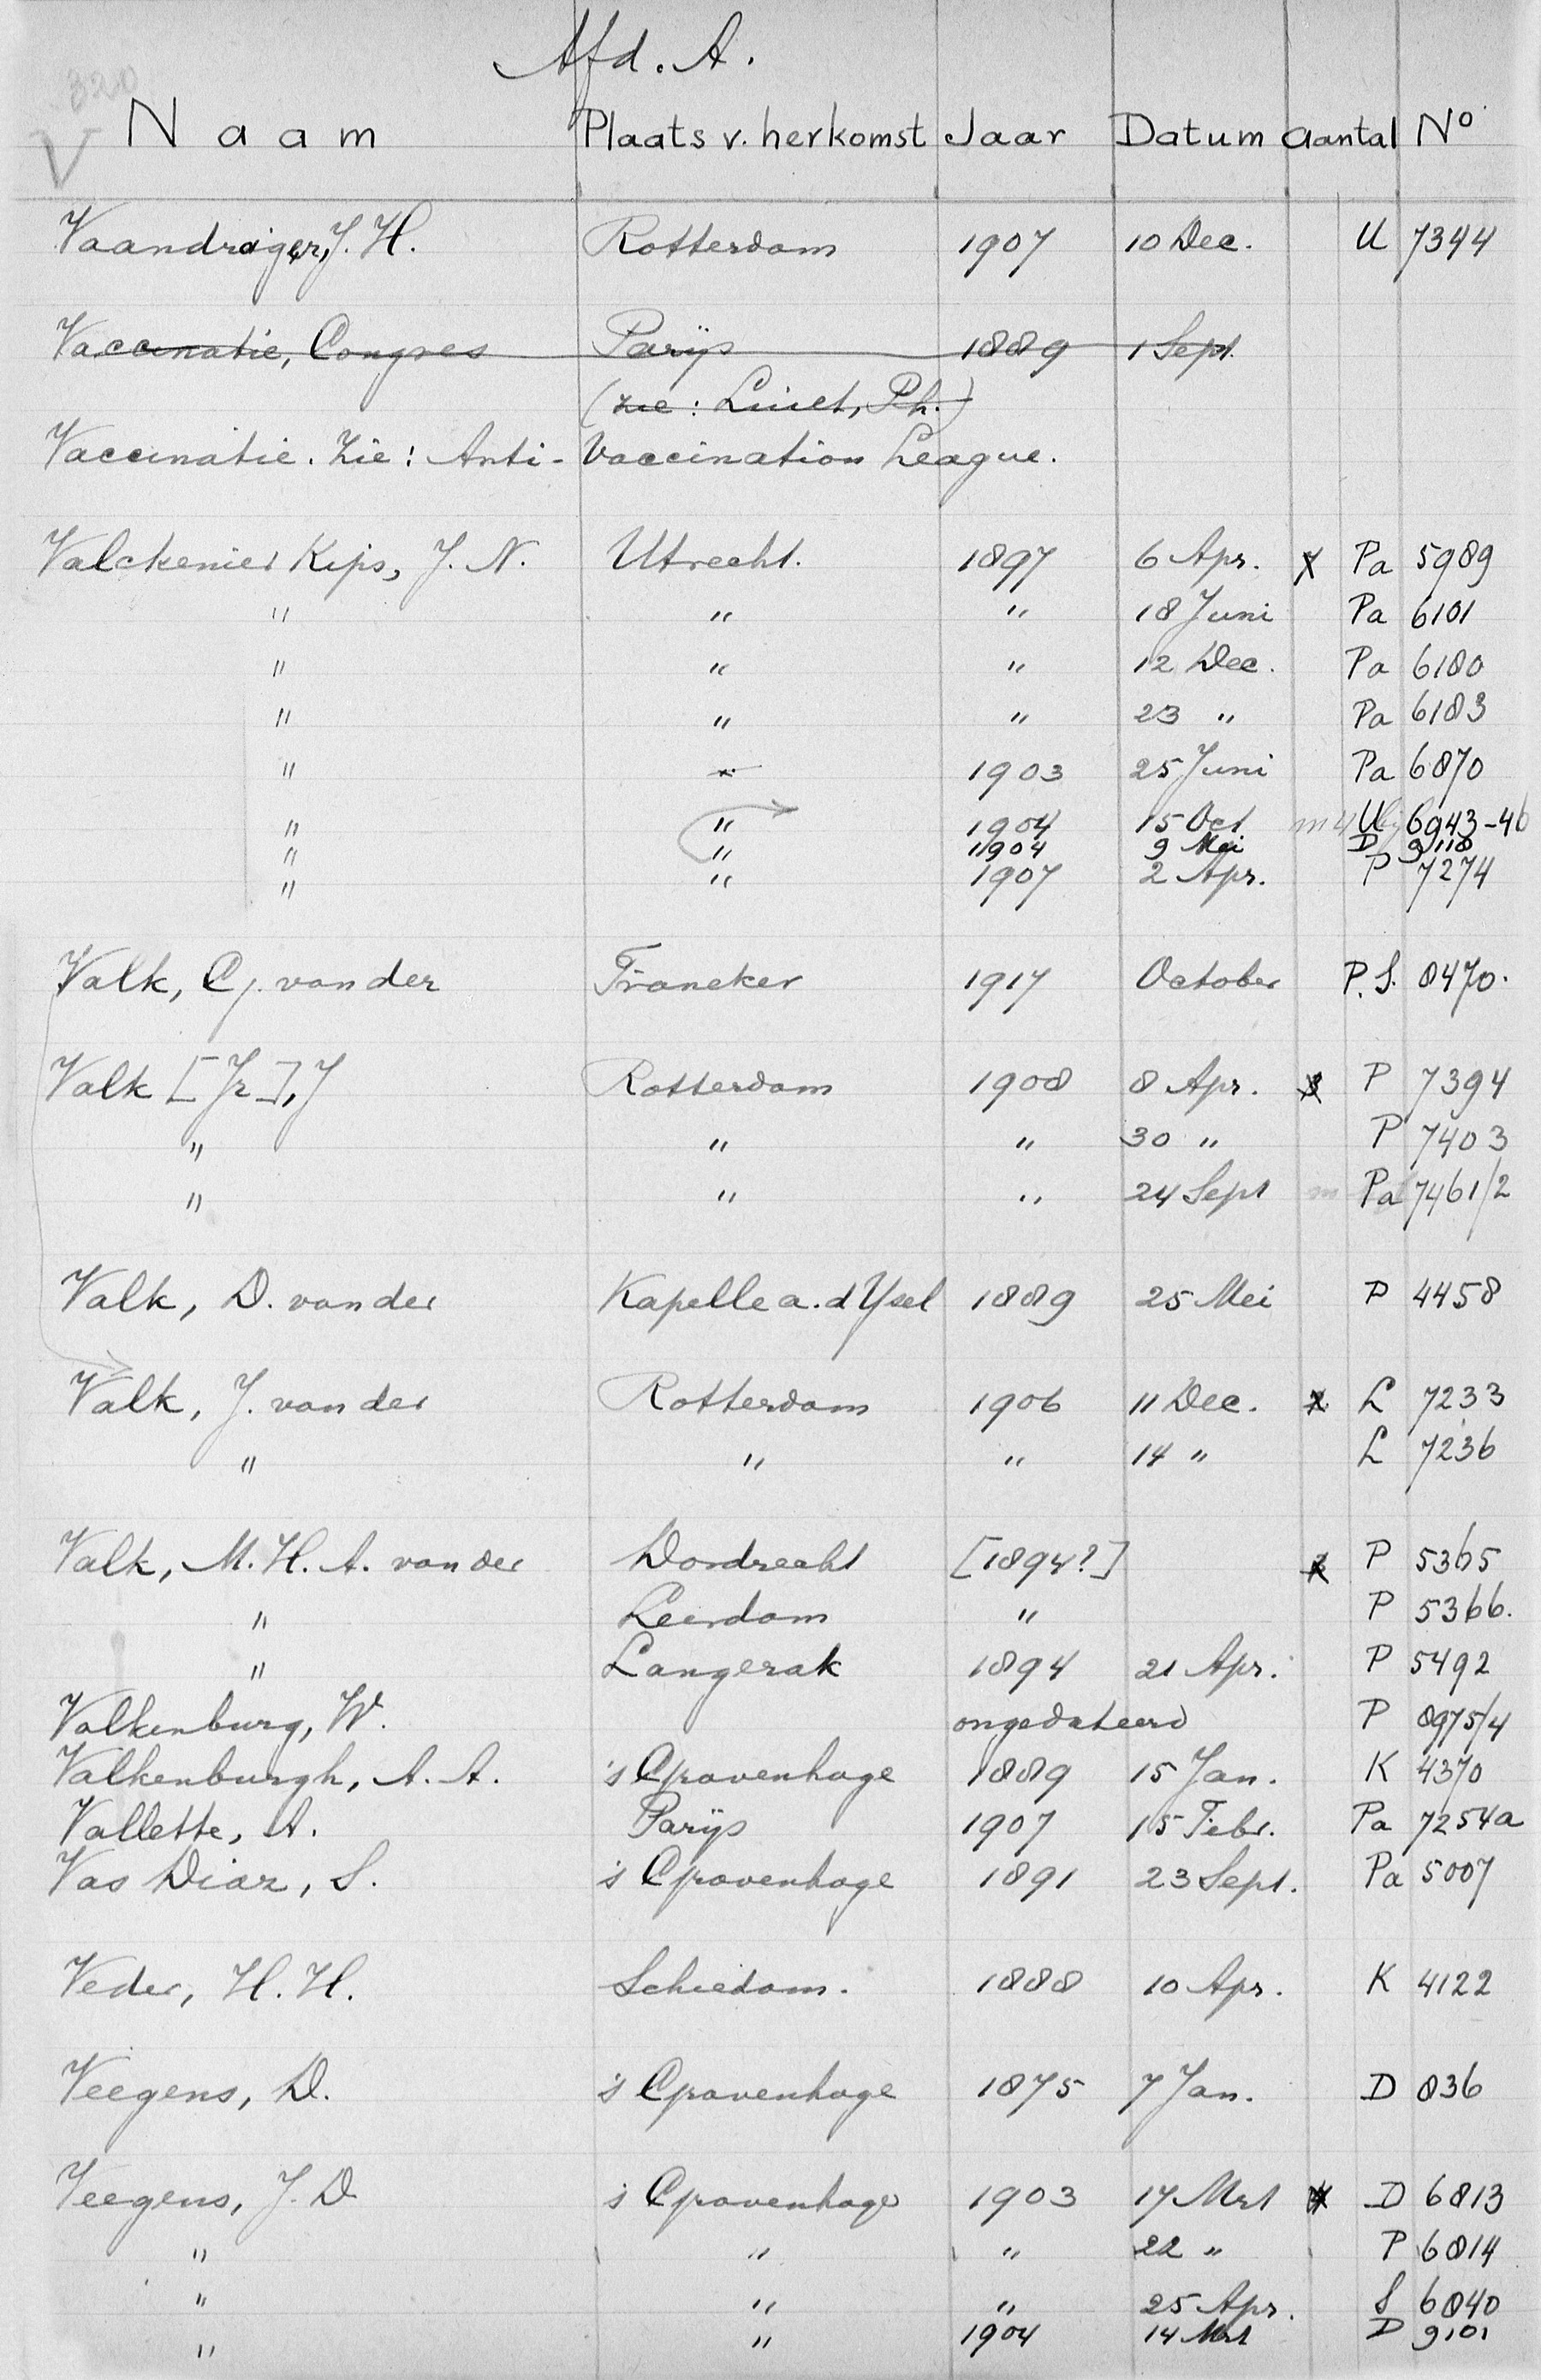 Afd. A.
320
V
Naam Plaats v. herkomst Jaar Datum aantal No
Vaandrager, J. H. Rotterdam 1907 10 Dec. U 7344
Vaccinatie, Congres Parijs 1889 1 Sept.
(zie: Linet, Ph.)
Vaccinatie. Zie: Anti-Vaccination League.
Valckenier Kips, J. N. Utrecht. 1897 6 Apr. Pa 5989
" " " 18 Juni Pa 6101
" " " 12 Dec. Pa 6180
" " " 23 " Pa 6183
" " 1903 25 Juni Pa 6870
" " 1904 15 Oct m 4 U 6943-46
" " 1904 9 Mei D 9118
" " 1907 2 Apr. P 7274
Valk, G. van der Franeker 1917 October P.S. 8470.
Valk [Jr], J Rotterdam 1908 8 Apr. 3 P 7394
" " " 30 " P 7403
" " " 24 Sept m Pa 7461/2
Valk, D. van der Kapelle a. d Ysel 1889 25 Mei P 4458
Valk, J. van der Rotterdam 1906 11 Dec. 2 L 7233
" " " 14 " L 7236
Valk, M. H. A. van der Dordrecht [1894?] P 5365
" Leerdam " P 5366.
" Langerak 1894 21 Apr. P 5492
Valkenburg, W. ongedateerd P 8975/4
Valkenburgh, A. A. 's Gravenhage 1889 15 Jan. K 4370
Vallette, A. Parijs 1907 15 Febr. Pa 7254a
Vas Diaz, S. 's Gravenhage 1891 23 Sept. Pa 5007
Veder, H. H. Schiedam. 1888 10 Apr. K 4122
Veegens, D. 's Gravenhage 1875 7 Jan. D 836
Veegens, J. D 's Gravenhage 1903 17 Mrt D 6813
" " " 22 " P 6814
" " " 25 Apr. S 6840
" " 1904 14 Mrt D 9101